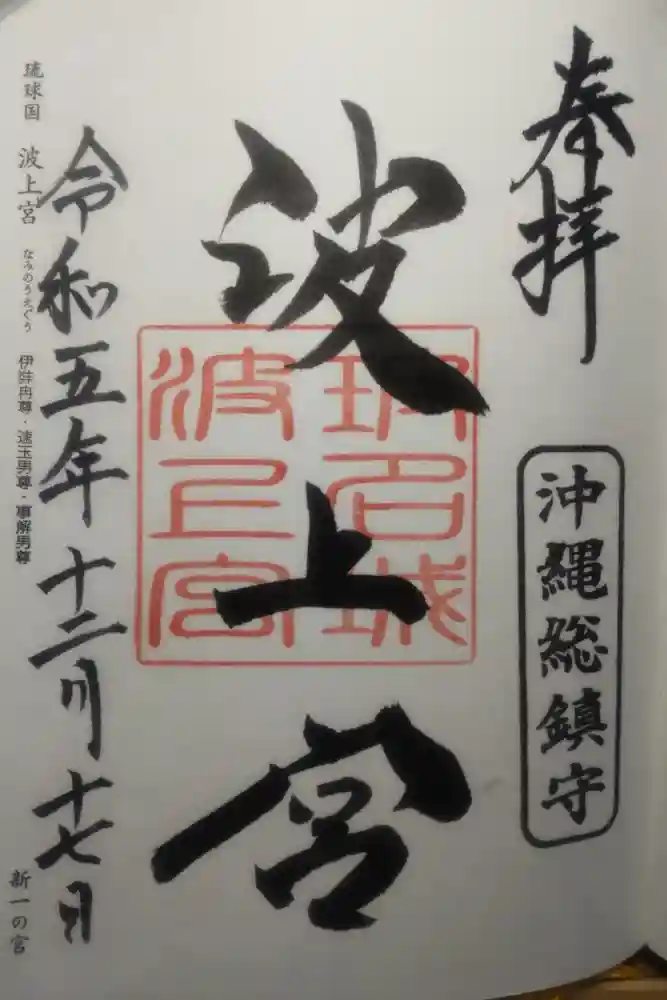 奉拝
沖縄総鎮守
波上宮
玑名城
波上宮
令和五年十二月十七日
琉球国 波上宮 なみのうえぐう 伊弉冉尊・速玉男尊・事解男尊
新一の宮